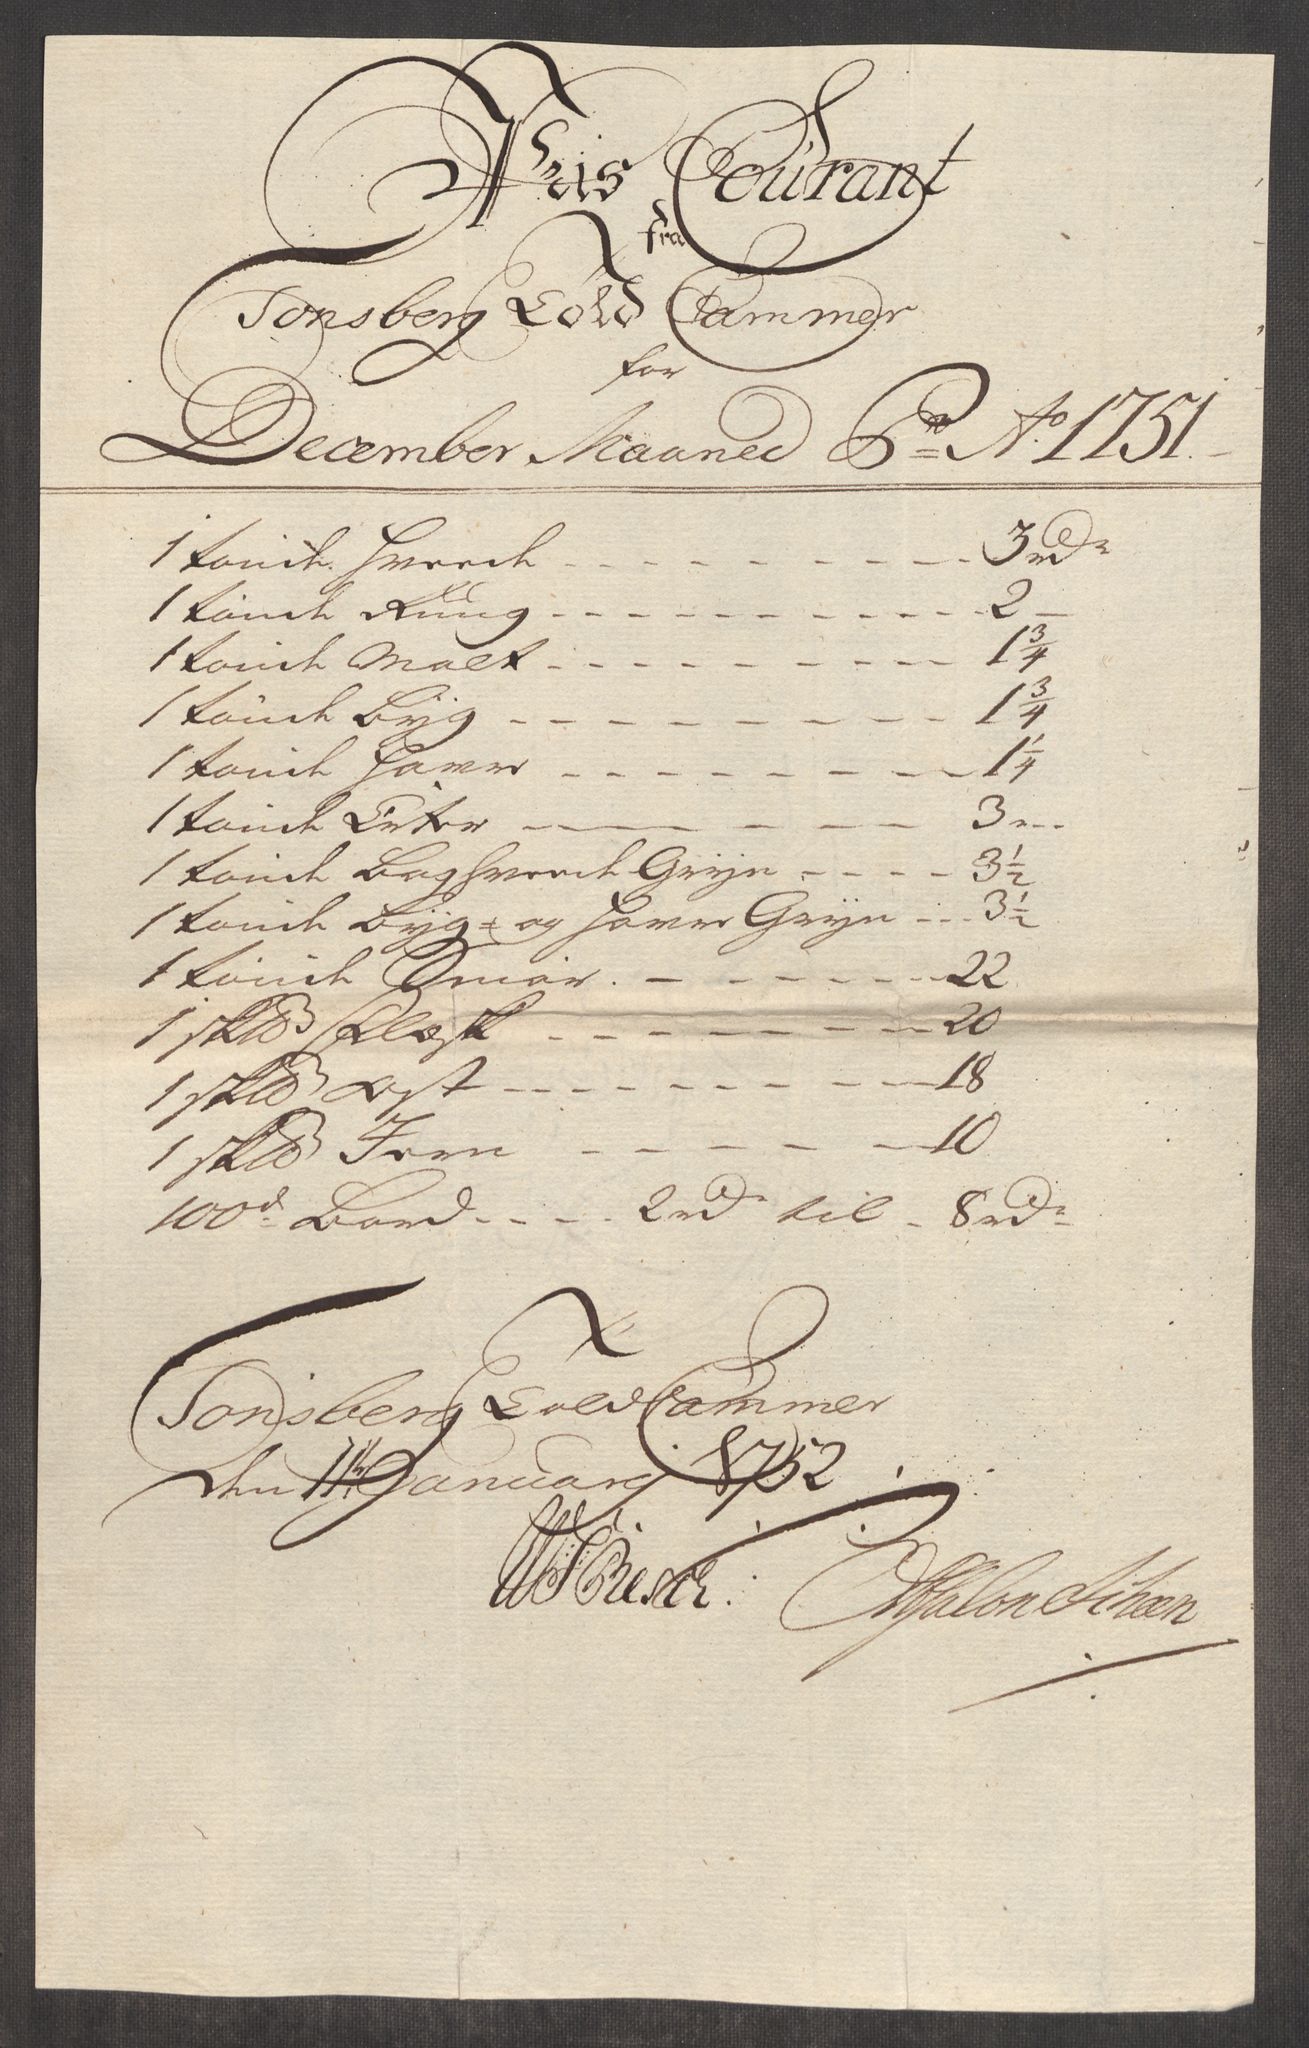 Priis Courant
fra
Tonsberg Told Cammer
for
December Maaned Ao 1751.
1 tønde Hveede - - - 3 rdr
1 tønde Rúug - - - 2 -
1 tønde Malt - - - 1 3/4
1 tønde Byg - - - 1 3/4
1 tønde Havre - - - 1 1/4
1 tønde Erter - - - 3 - -
1 tønde Boghveede Gryn - - - 3 1/2
1 tønde Byg= og Havre Gryn - - 3 1/2
1 tønde Smør - - - 22
1 sk℔ Flesk - - - 20
1 sk℔ Ost - - - 18
1 sk℔ Jern - - - 10
100d Bord - - - 2 rdr til - 8 rdr
Tonsberg Told Cammer
den 11te January 1752
Absalon